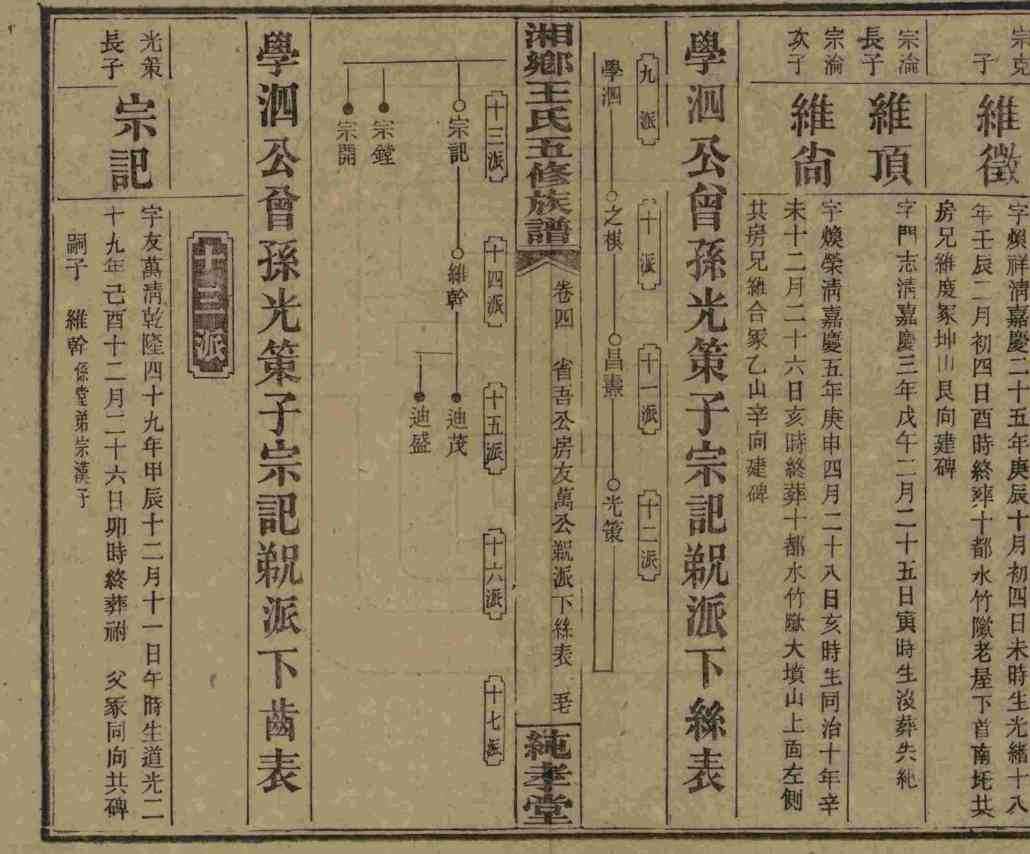 宗克
子
維徵
字煥祥清嘉慶二十五年庚辰十月初四日未時生光緒十八
年壬辰二月初四日酉時終葬十都水竹𡒄老屋下首南圫共
房兄維度冢坤山艮向建碑
宗淪
長子
維頂
字門志清嘉慶三年戊午二月二十五日寅時生沒葬失紀
宗淪
次子
維尙
字煥榮清嘉慶五年庚申四月二十八日亥時生同治十年辛
未十二月二十六日亥時終葬十都水竹𡒄大墳山上面左側
其房兄維合冢乙山辛向建碑
學泗公曾孫光策子宗記派下絲表
九派
十派
十一派
十二派
學泗
之棋
昌
光策
湘鄉王氏五修族譜
卷四
省吾公房友萬公派下絲表
純孝堂
十三派
十四派
十五派
十六派
十七派
宗記
維幹
迪茂
宗鏜
迪盛
宗開
學泗公曾孫光策子宗記派下齒表
十三派
光策
長子
宗記
字友萬清乾隆四十九年甲辰十二月十一日午時生道光二
十九年己酉十二月二十六日卯時終葬祔 父冢同向共碑
嗣子 維幹係堂弟宗漢子